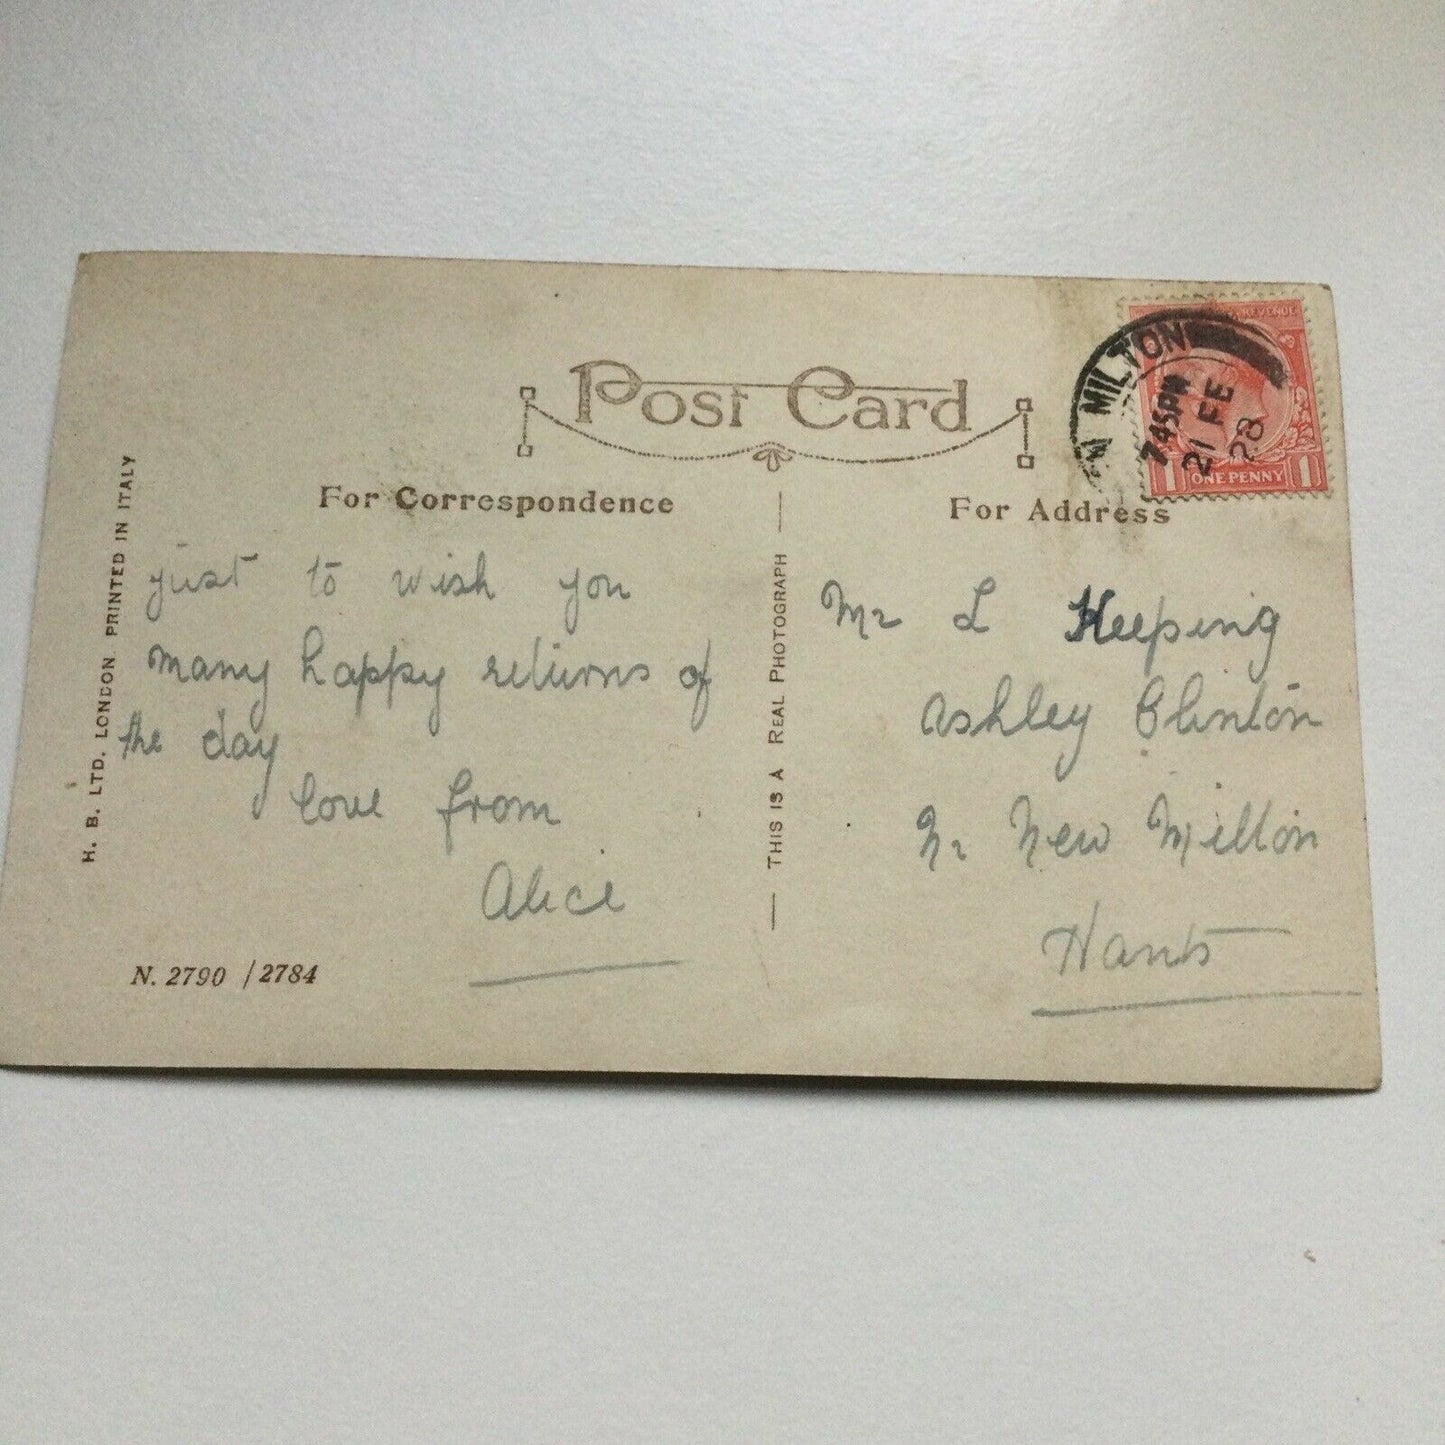 Post Card
For Correspondence
For Address
H. B. LTD. LONDON. PRINTED IN ITALY
just to wish you
many happy returns of
the day
love from
Alice
N. 2790 /2784
THIS IS A REAL PHOTOGRAPH
MILTON
745PM
21 FE
28
REVENUE
1 ONE PENNY 1
Mr L Keeping
Ashley Clinton
Nr New Milton
Hants